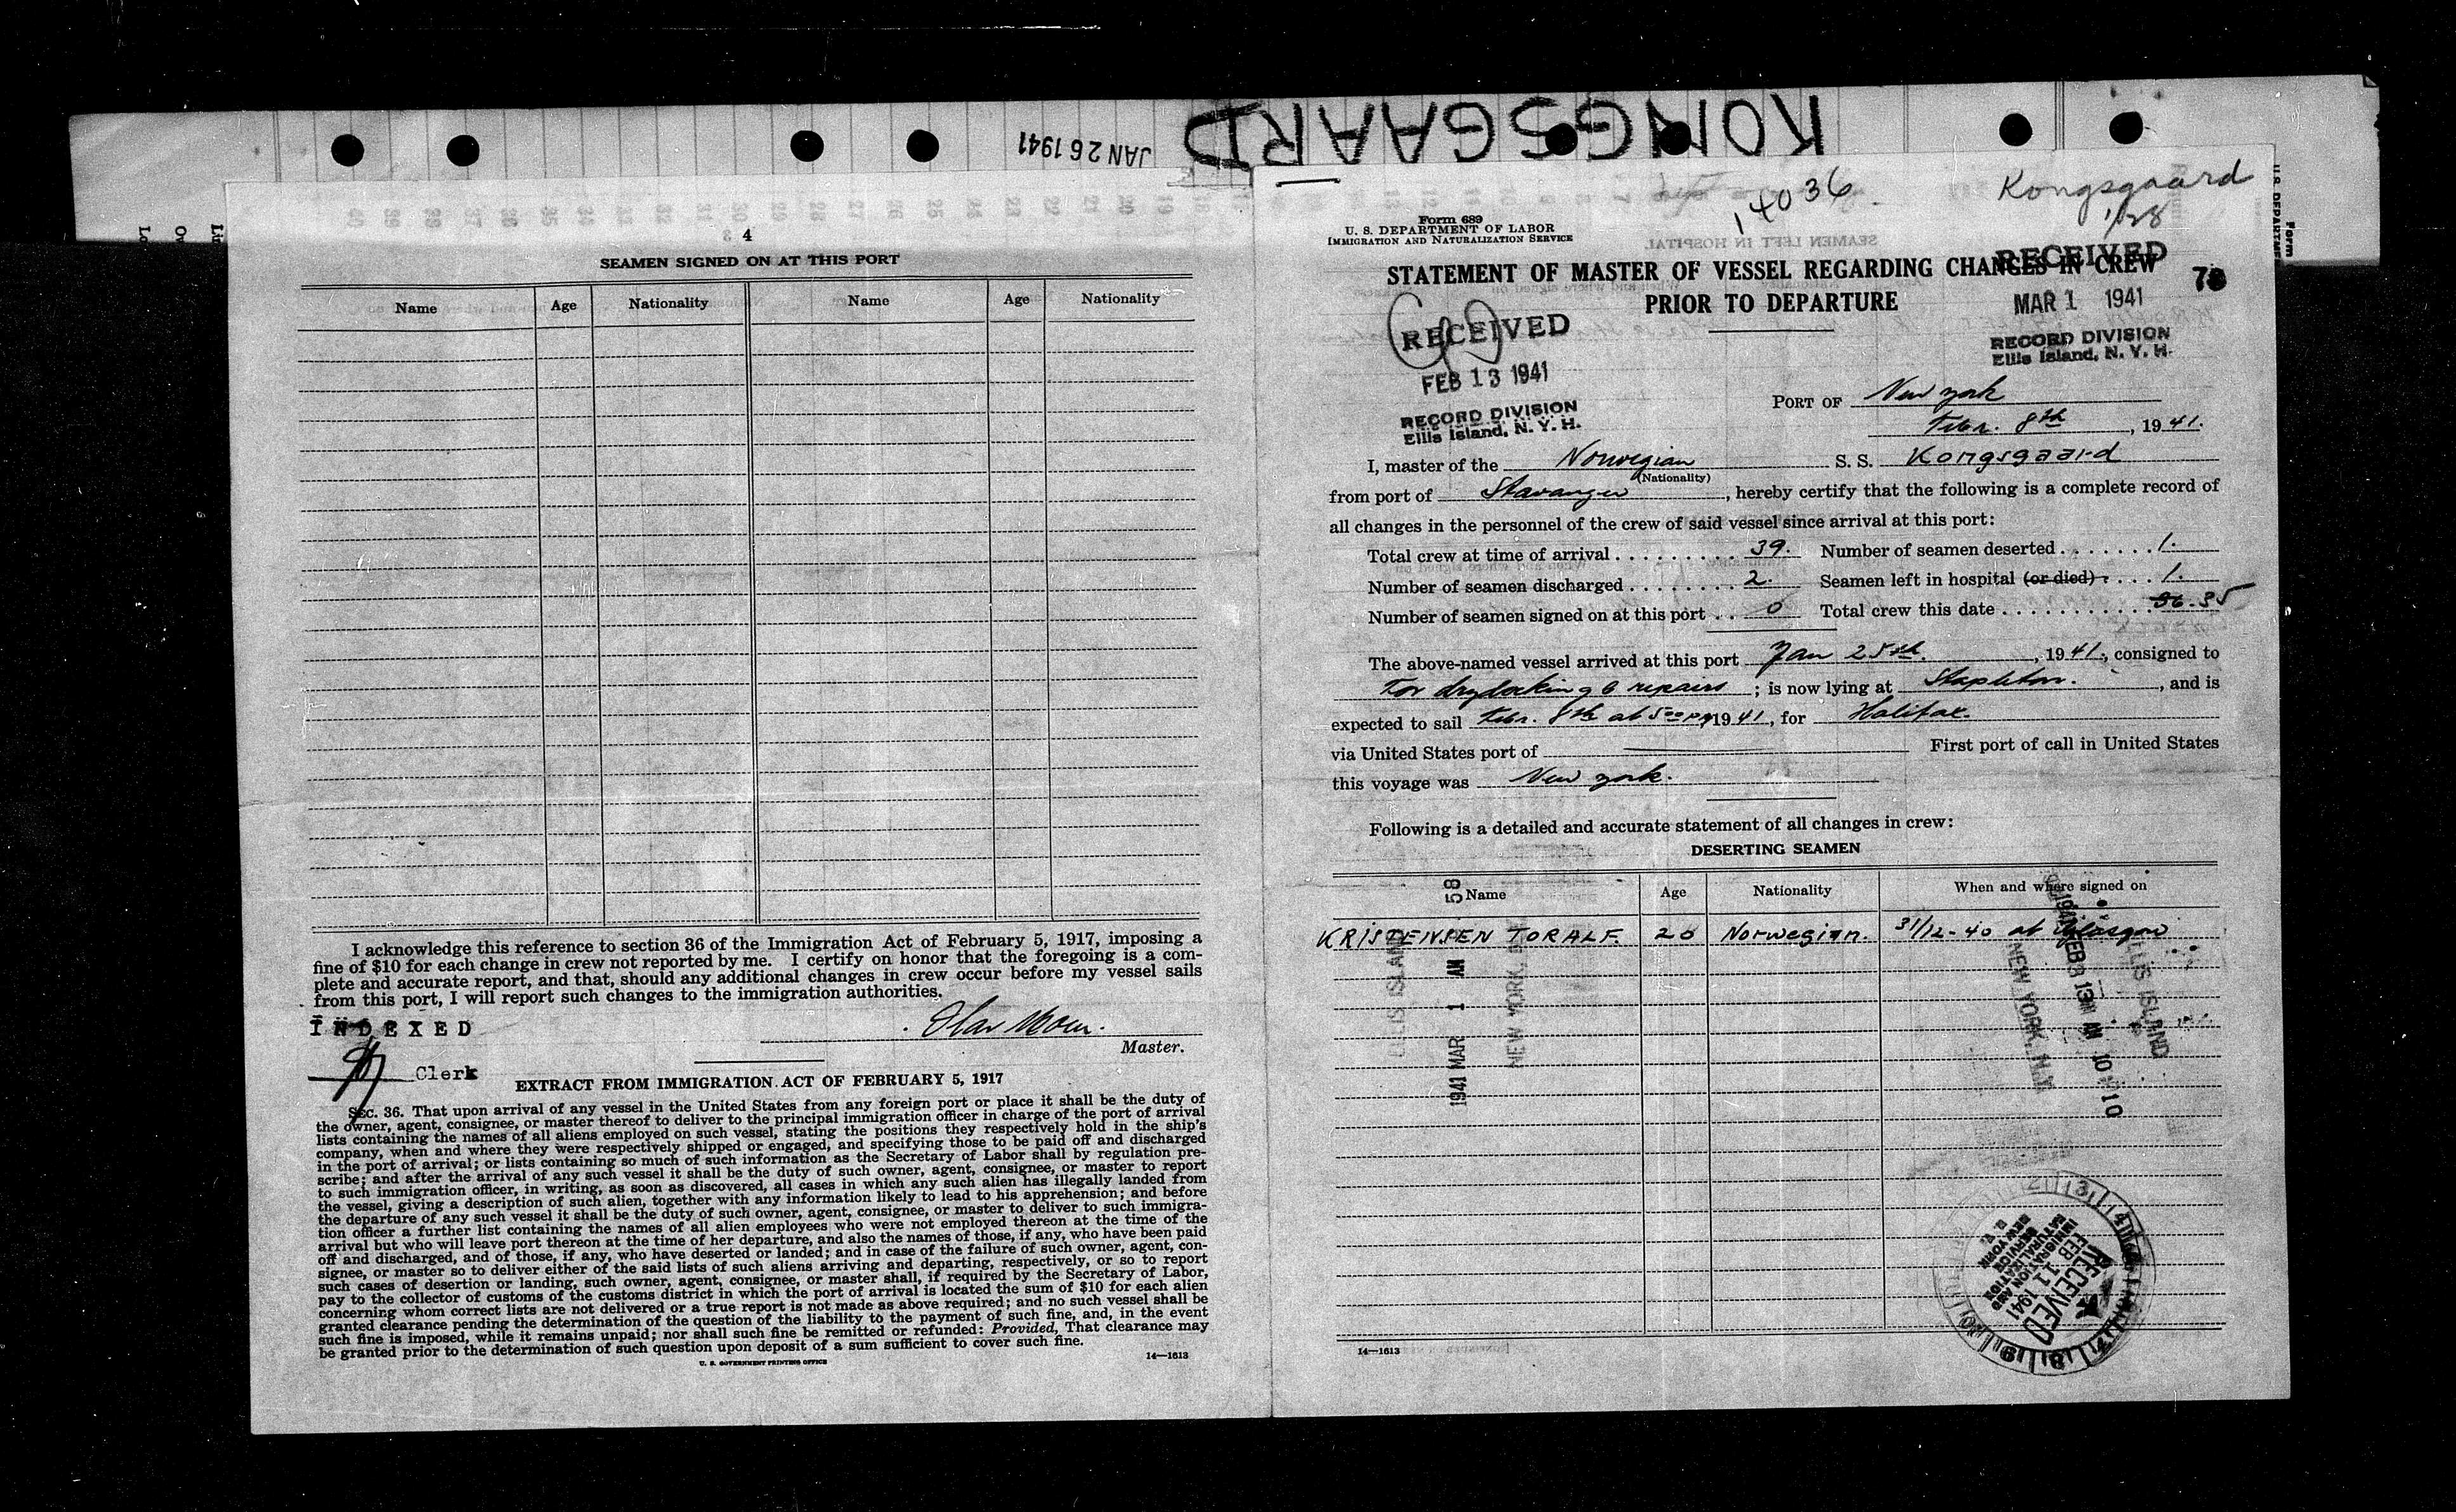 KONGSGAARD
JAN 26 1941
4
SEAMEN SIGNED ON AT THIS PORT
Name Age Nationality Name Age Nationality
I acknowledge this reference to section 36 of the Immigration Act of February 5, 1917, imposing a
fine of $10 for each change in crew not reported by me. I certify on honor that the foregoing is a com-
plete and accurate report, and that, should any additional changes in crew occur before my vessel sails
from this port, I will report such changes to the immigration authorities.
INDEXED
Master.
Clerk
EXTRACT FROM IMMIGRATION ACT OF FEBRUARY 5, 1917
SEC. 36. That upon arrival of any vessel in the United States from any foreign port or place it shall be the duty of
the owner, agent, consignee, or master thereof to deliver to the principal immigration officer in charge of the port of arrival
lists containing the names of all aliens employed on such vessel, stating the positions they respectively hold in the ship's
company, when and where they were respectively shipped or engaged, and specifying those to be paid off and discharged
in the port of arrival; or lists containing so much of such information as the Secretary of Labor shall by regulation pre-
scribe; and after the arrival of any such vessel it shall be the duty of such owner, agent, consignee, or master to report
to such immigration officer, in writing, as soon as discovered, all cases in which any such alien has illegally landed from
the vessel, giving a description of such alien, together with any information likely to lead to his apprehension; and before
the departure of any such vessel it shall be the duty of such owner, agent, consignee, or master to deliver to such immigra-
tion officer a further list containing the names of all alien employees who were not employed thereon at the time of the
arrival but who will leave port thereon at the time of her departure, and also the names of those, if any, who have been paid
off and discharged, and of those, if any, who have deserted or landed; and in case of the failure of such owner, agent, con-
signee, or master so to deliver either of the said lists of such aliens arriving and departing, respectively, or so to report
such cases of desertion or landing, such owner, agent, consignee, or master shall, if required by the Secretary of Labor,
pay to the collector of customs of the customs district in which the port of arrival is located the sum of $10 for each alien
concerning whom correct lists are not delivered or a true report is not made as above required; and no such vessel shall be
granted clearance pending the determination of the question of the liability to the payment of such fine, and, in the event
such fine is imposed, while it remains unpaid; nor shall such fine be remitted or refunded: Provided, That clearance may
be granted prior to the determination of such question upon deposit of a sum sufficient to cover such fine.
U. S. GOVERNMENT PRINTING OFFICE
14—1613
14036
Kongsgaard
1/28
Form 689
U. S. DEPARTMENT OF LABOR
IMMIGRATION AND NATURALIZATION SERVICE
STATEMENT OF MASTER OF VESSEL REGARDING CHANGES IN CREW
PRIOR TO DEPARTURE
RECEIVED
MAR 1 1941
RECORD DIVISION
Ellis Island, N. Y. H.
RECEIVED
FEB 13 1941
RECORD DIVISION
Ellis Island, N. Y. H.
PORT OF New York
Febr. 8th, 1941.
I, master of the Norwegian S. S. Kongsgaard
(Nationality)
from port of Stavanger, hereby certify that the following is a complete record of
all changes in the personnel of the crew of said vessel since arrival at this port:
Total crew at time of arrival 39. Number of seamen deserted 1.
Number of seamen discharged 2. Seamen left in hospital (or died) 1.
Number of seamen signed on at this port 0 Total crew this date 36. 35
The above-named vessel arrived at this port Jan 25th, 1941, consigned to
For drydocking & repairs; is now lying at Stapleton., and is
expected to sail Febr. 8th at 5 00 PM 1941, for Halifax.
via United States port of First port of call in United States
this voyage was New York.
Following is a detailed and accurate statement of all changes in crew:
DESERTING SEAMEN
Name Age Nationality When and where signed on
KRISTENSEN TORALF. 20 Norwegian. 31/12-40 at Glasgow
ELLIS ISLAND
1941 MAR 1 AM 58
NEW YORK, N.Y.
ELLIS ISLAND
NEW YORK, N.Y.
RECEIVED
FEB 11 1941
IMMIGRATION AND
NATURALIZATION
SERVICE
NEW YORK
14—1613